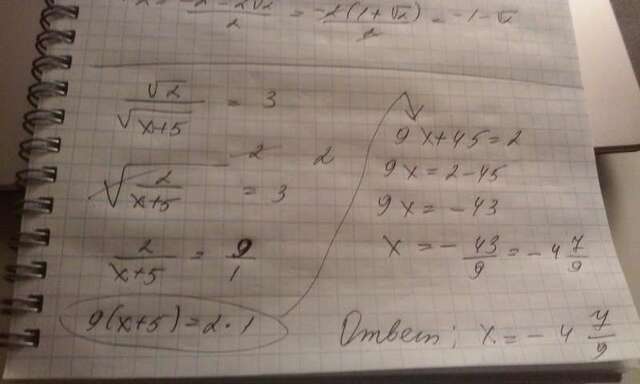 = (-2-2√2)/2 = -2(1+√2)/2 = -1-√2
√2/√(x+5) = 3
√(2/(x+5))² = 3²
2/(x+5) = 9/1
9(x+5)=2·1
9x+45=2
9x=2-45
9x=-43
x=-43/9=-4 7/9
Ответ; x=-4 7/9